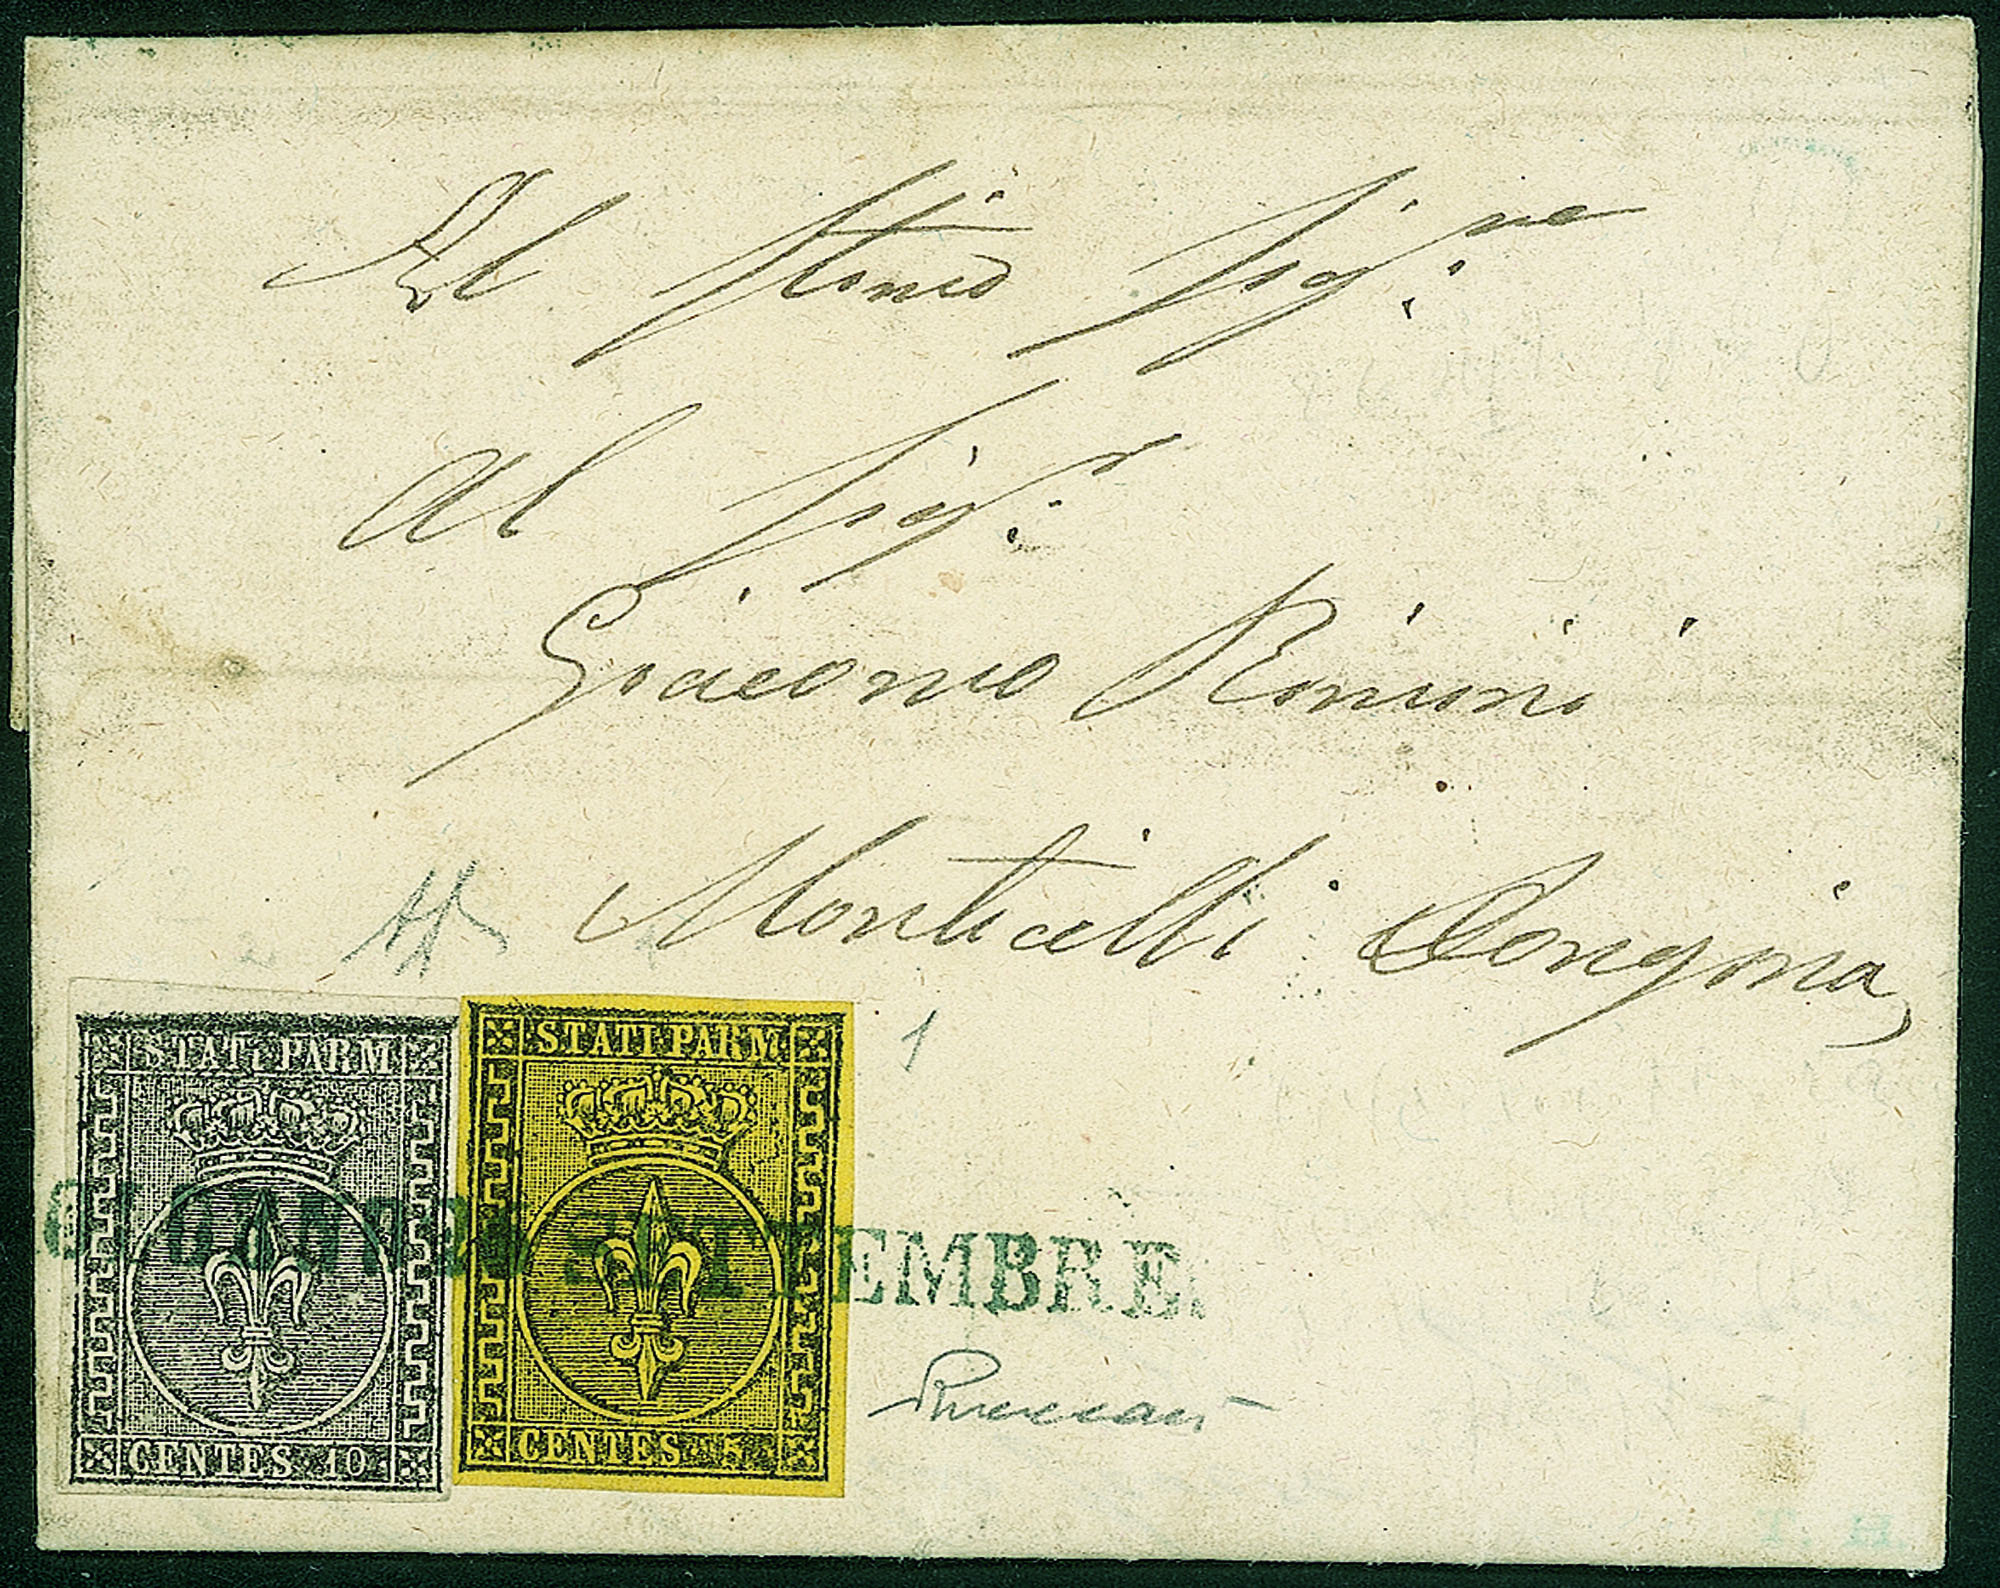 Al Stimo Sigre.
Al Sigr.
Giacomo Rimini
Monticelli Dongina,
1
STATI PARM
CENTES. 10
STATI PARM.
CENTES. 5
SETTEMBRE